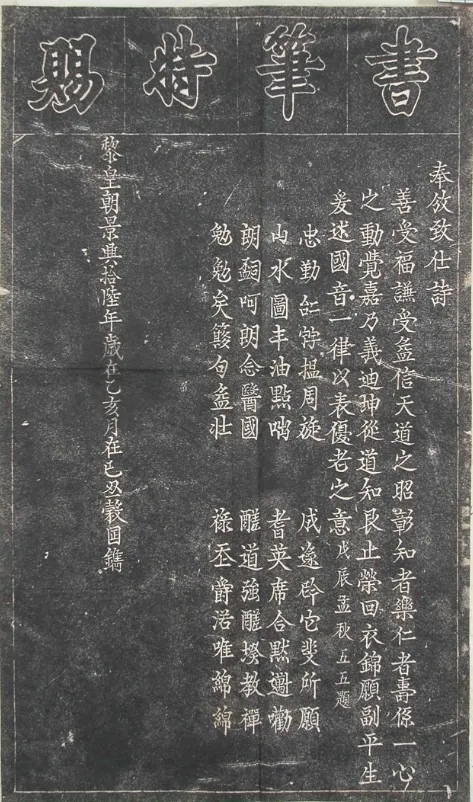 書筆特賜
奉攽致仕詩
善受福謙受益信天道之昭彰知者樂仁者壽係一心
之動覺嘉乃義迪坤從道知艮止榮回衣錦願副平生
爰述國音一律以表優老之意戊辰孟秋五五題
忠勤揾周旋 成它斐所願
山水圖丰油點喘 耆英席合默邊勸
朗呵朗念醫國 醒道強醒教禪
勉勉矣句益壯 祿丕爵渃唯綿綿
黎皇朝景興拾陸年歲在乙亥月在己丑穀囯鐫